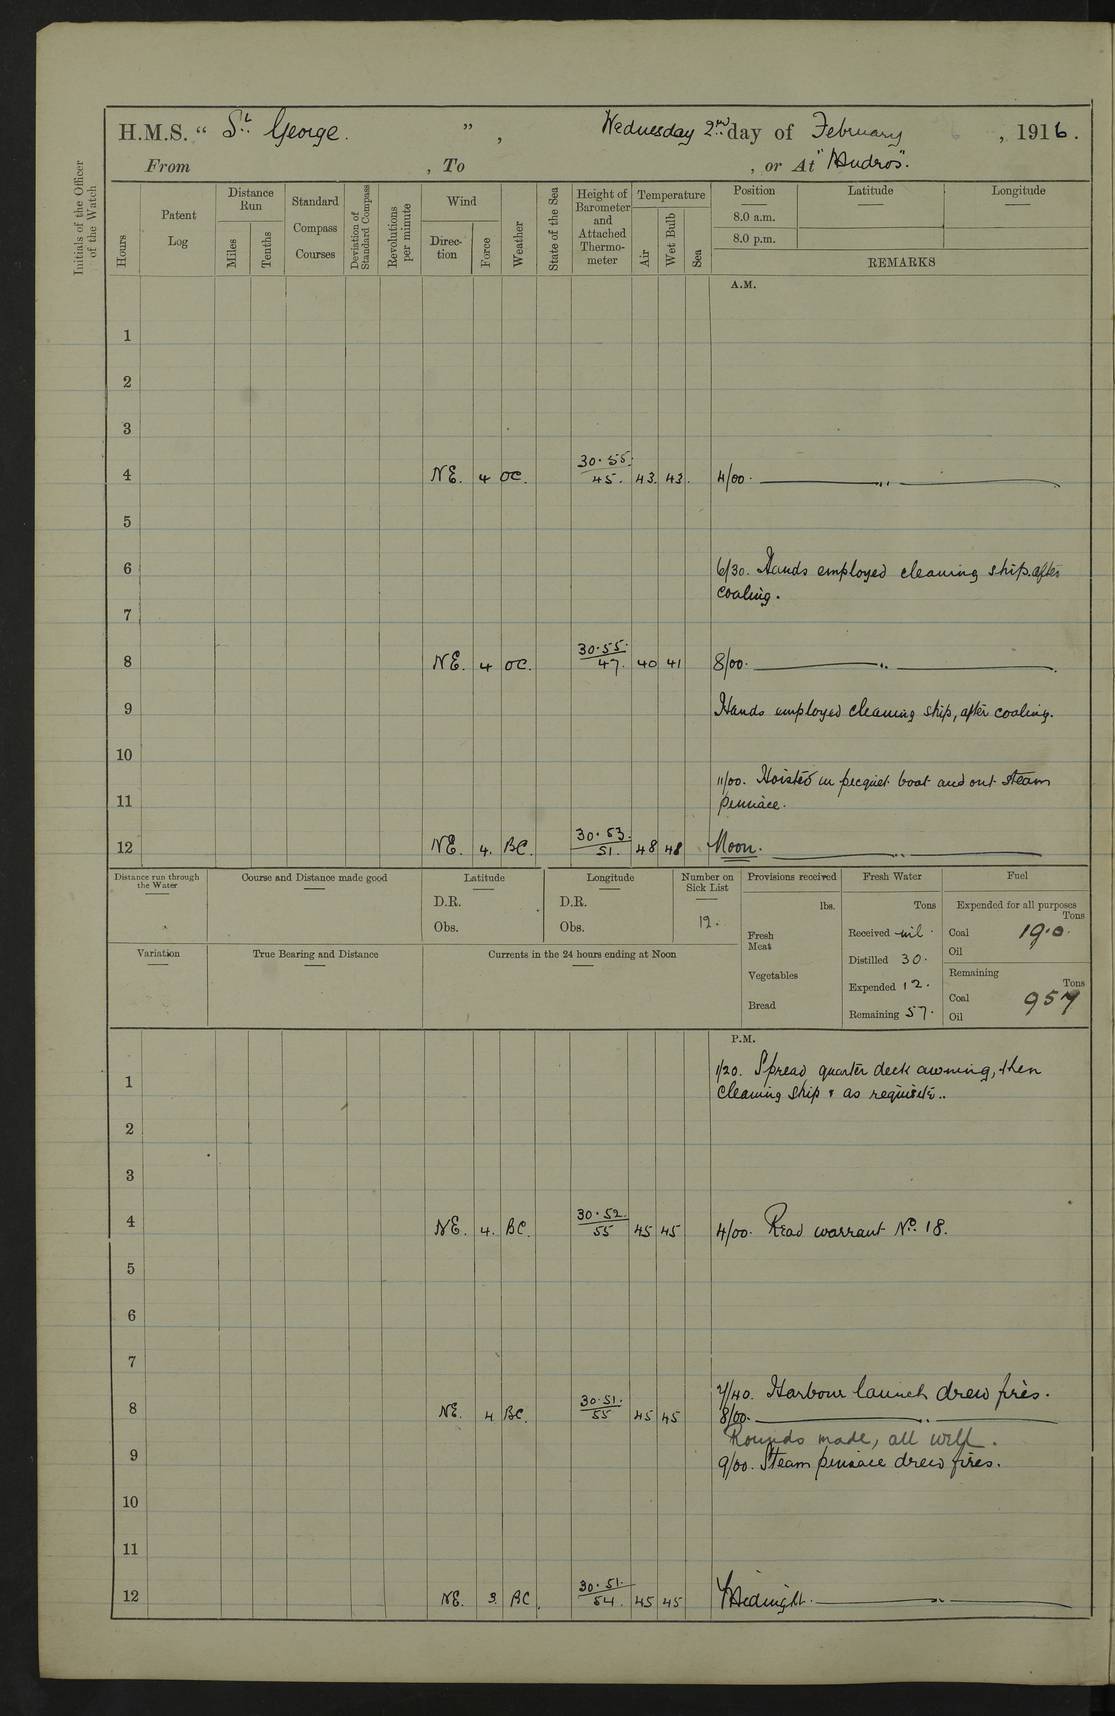 H.M.S. “ St George. ” , Wednesday 2nd day of February , 1916.
From , To , or At "Mudros".
Initials of the Officer of the Watch
Hours
Patent Log
Distance Run
Miles
Tenths
Standard Compass Courses
Deviation of Standard Compass
Revolutions per minute
Wind
Direc-tion
Force
Weather
State of the Sea
Height of Barometer and Attached Thermo-meter
Temperature
Air
Wet Bulb
Sea
Position Latitude Longitude
8.0 a.m.
8.0 p.m.
REMARKS
A.M.
1
2
3
4 NE. 4 OC. 30.55. 45. 43. 43. 4/00. ———— „ ————
5
6 6/30. Hands employed cleaning ship after
coaling.
7
8 NE. 4 OC. 30.55. 47. 40 41 8/00. ———— „ ————
9 Hands employed cleaning ship, after coaling.
10
11/00. Hoisted in picquet boat and out steam
11 pinnace.
12 NE. 4. BC. 30.53. 51. 48 48 Noon. ———— „ ————
Distance run through the Water
Course and Distance made good
Latitude
D.R.
Obs.
Longitude
D.R.
Obs.
Number on Sick List
12.
Provisions received
lbs.
Fresh Meat
Vegetables
Bread
Fresh Water
Tons
Received nil.
Distilled 30.
Expended 12.
Remaining 57.
Fuel
Expended for all purposes
Tons
Coal 19.0.
Oil
Remaining
Tons
Coal 957
Oil
Variation
True Bearing and Distance
Currents in the 24 hours ending at Noon
P.M.
1/20. Spread quarter deck awning, then
1 cleaning ship & as requisite..
2
3
4 NE. 4. BC. 30.52. 55 45 45 4/00. Read warrant No. 18.
5
6
7
7/40. Harbour launch drew fires.
8 NE. 4 BC. 30.51. 55 45 45 8/00. ———— „ ————
Rounds made, all well.
9 9/00. Steam pinnace drew fires.
10
11
12 NE. 3. BC. 30.51. 54. 45 45 Midnight. ———— „ ————